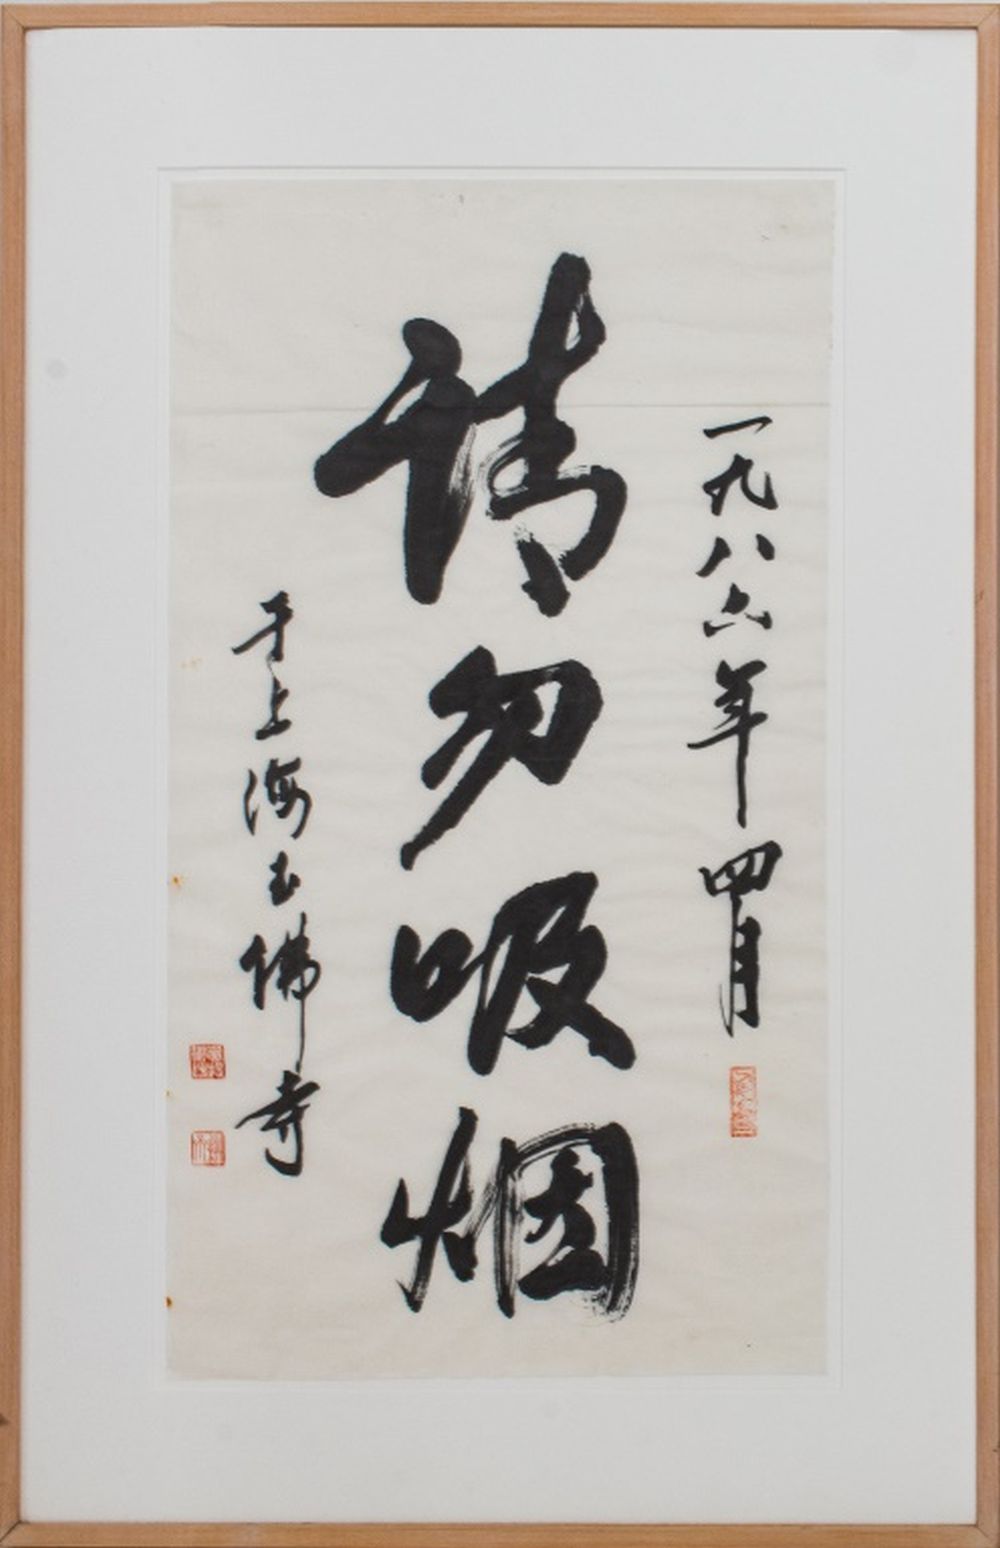 一九八六年四月
请勿吸烟
于上海玉佛寺